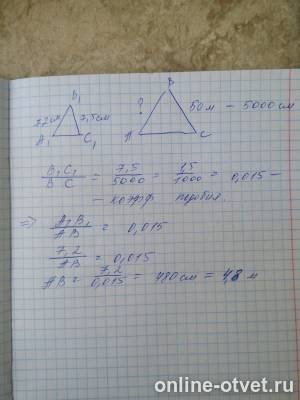 B₁
7,2 см
7,5 см
A₁
C₁
B
?
50 м – 5000 см
A
C
B₁C₁ / BC = 7,5 / 5000 = 1,5 / 1000 = 0,015 –
– коэфф подобия.
⇒ A₁B₁ / AB = 0,015
7,2 / AB = 0,015
AB = 7,2 / 0,015 = 480 см = 4,8 м
online-otvet.ru